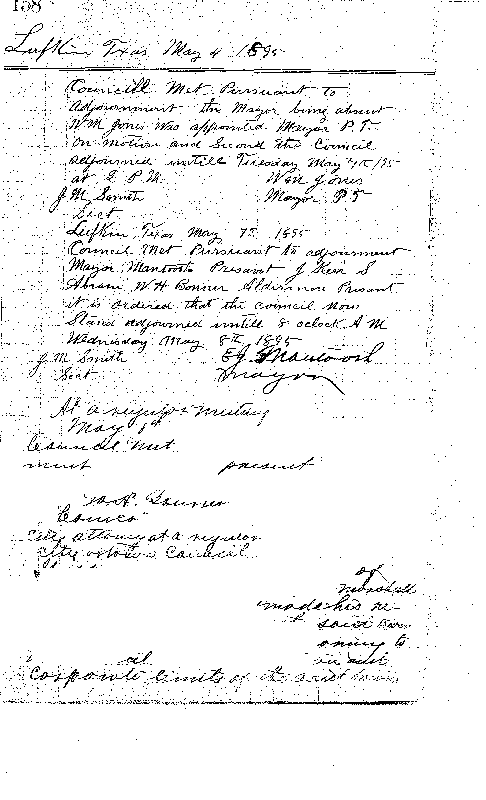 158
Lufkin Texas May 4 1895
Councill Met Pursuant to
adjournment the Mayor being absent
W.M. Jones was appointed Mayor P.T.
on motion and Second the Council
adjourned untill Tuesday May 7th /95
at 8 P.M. Wm Jones
J.M. Smith Mayor P.T
Sect
Lufkin Texas May 7th 1895
Council Met Pursuant to adjournment
Mayor Mantooth Presant J Kerr S
Abram W H Bonner Aldermen Presant
it is ordered that the council now
Stand adjourned untill 8 oclock A M
Wednesday May 8th 1895
J M Smith E J Mantooth
Sect Mayor
At a regular meeting
May
Council met
present
W.H. Bonner
City attorney at a regular
City Council
of
Marshall
made his re-
said
to
corporate limits of the said town